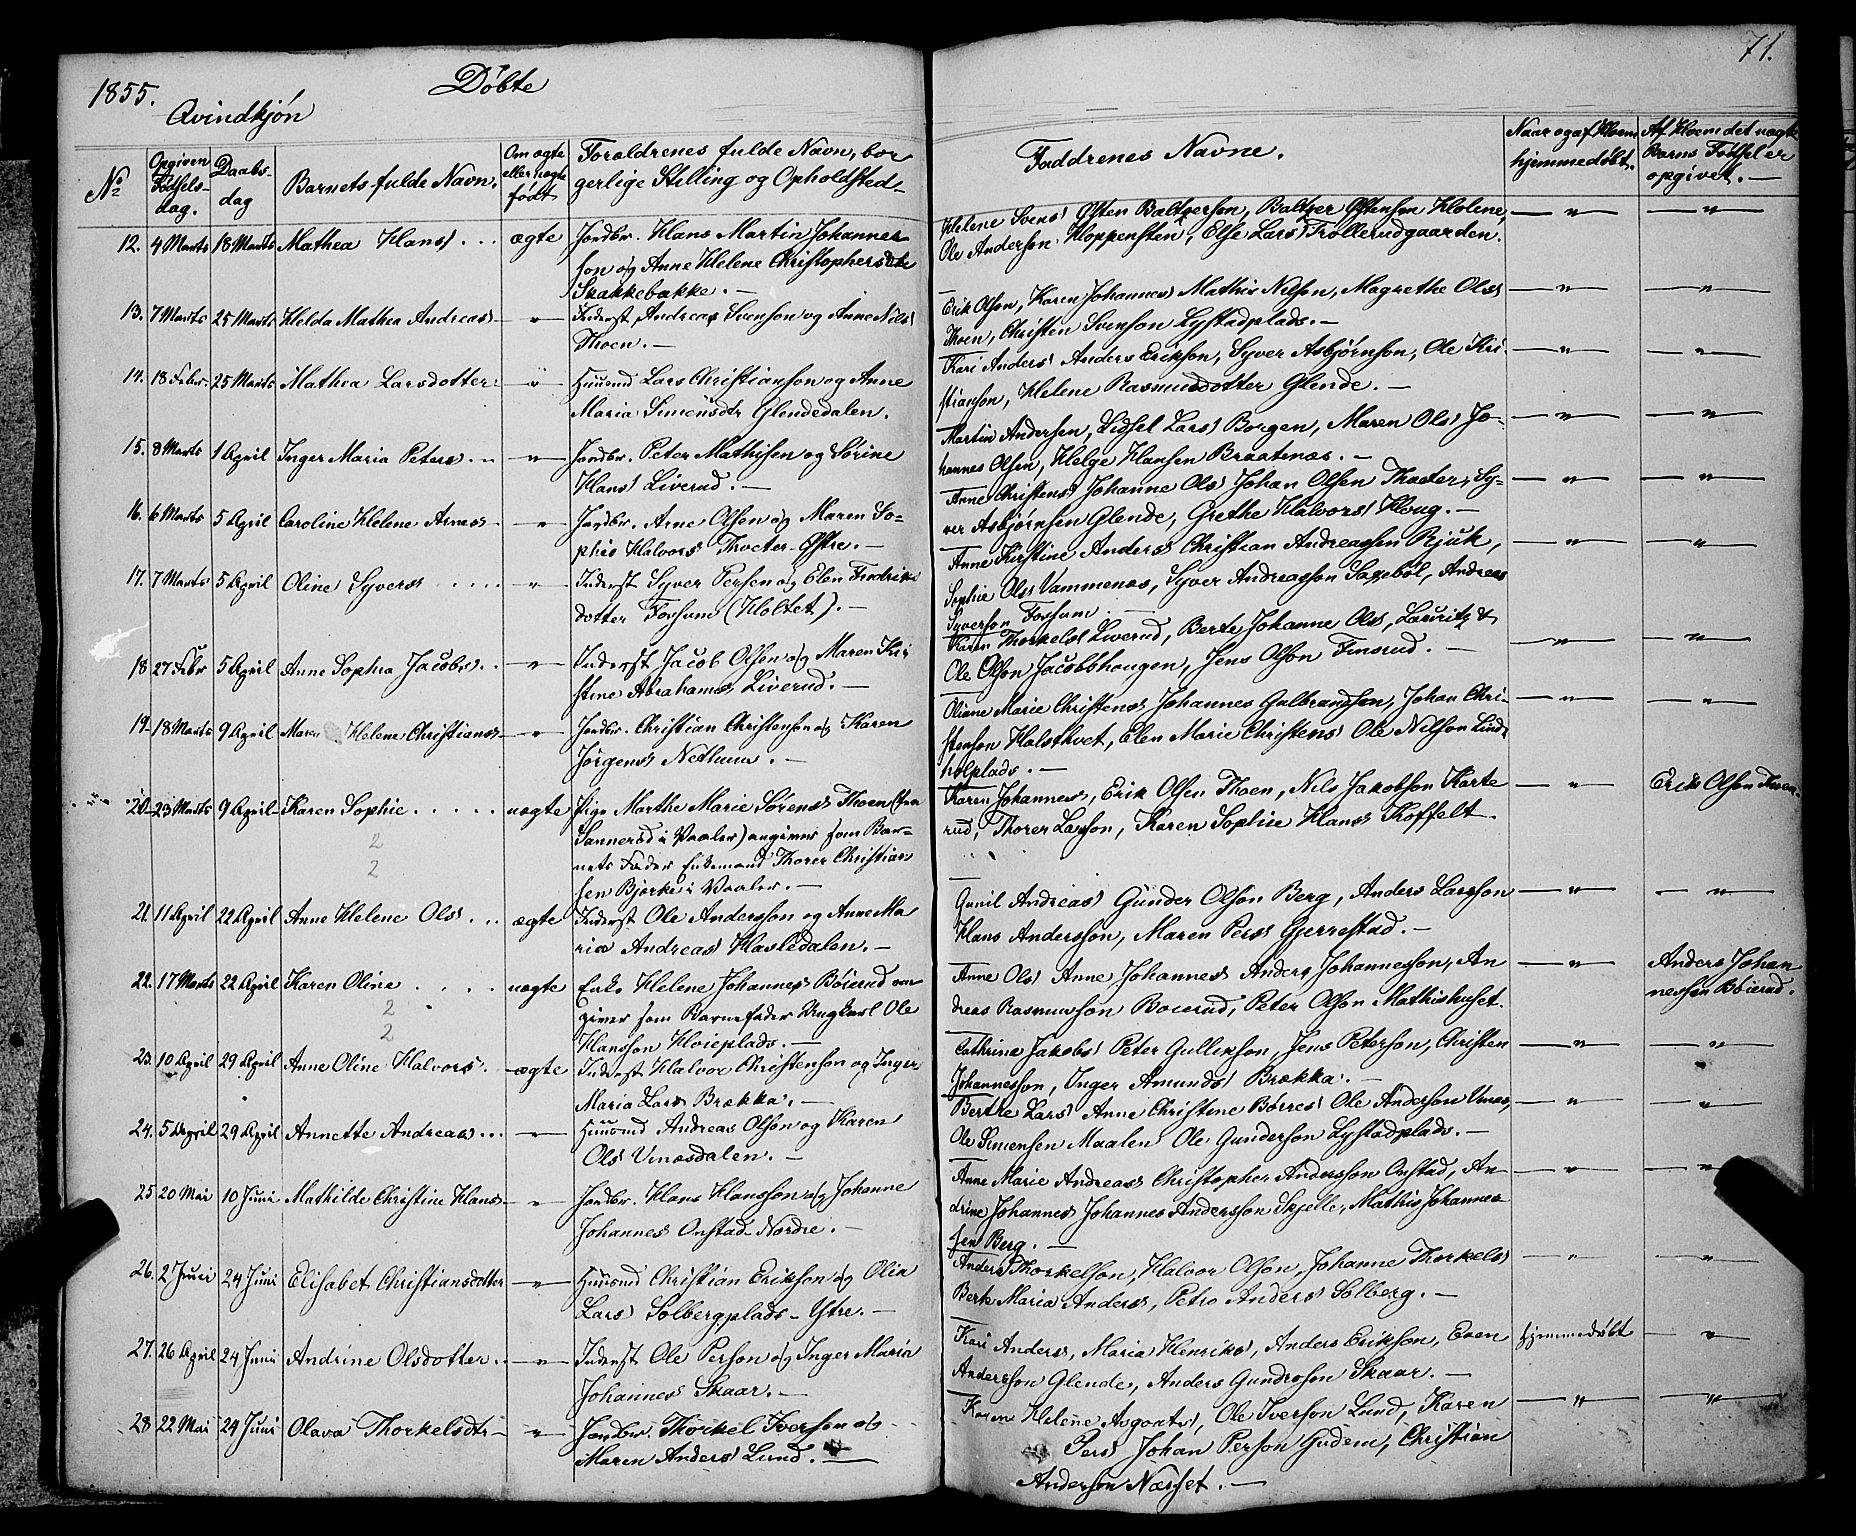 71.
1855.
Döbte
Qvindkjón
No
Opgiven Fødselsdag.
Daabsdag
Barnets fulde Navn.
Om ægte eller uægte født
Forældrenes fulde Navn, borgerlige Stilling og Opholdsted
Faddrenes Navne.
Naar og af Hvem hjemmedøbt.
Af Hvem det uægte Barns Fødsel er opgivet.
12. 4 Marts 18 Marts Mathea Hans) ægte Jordbr. Hans Martin Johannes
son og Anne Helene Christophersdtr
Skakkebække.
Helene Svens) Østen Baltzerson, Baltzer Østenson
Ole Anderson Kloppensten, Else Lars) Trollerudgaarden.
13. 7 Marts 25 Marts Helda Mathea Andreas) " Inderst Andreas Svenson og Anne Nils)
Thoen.
Erik Olson, Karen Johannes) Mathis Nilson, Magrethe Ols)
Thoen, Christen Svenson Lystadplads.
14. 18 Febr. 25 Marts Mathea Larsdotter " Huusmd Lars Christianson og Anne
Maria Simensdtr Glendedalen.
Kari Anders) Anders Erikson, Syver Asbjørnson, Ole Kri-
stianson, Helene Rasmusdotter Glende.
15. 8 Marts 1 April Inger Maria Peters) " Jordbr. Peter Mathisen og Sørine
Hans) Liverud.
Martin Andersen, Sidsel Lars) Borgen, Maren Ols) Jo-
hannes Olsen, Helge Hansen Braatenæs.
16. 6 Marts 5 April Caroline Helene Arnes) " Jordbr. Arne Olsen og Maren So-
phie Halvors) Thveter-Østre.
Anne Christens) Johanne Ols) Johan Olsen Thveter, Sy-
ver Asbjørnsen Glende, Grethe Halvors) Houg.
17. 7 Marts 5 April Oline Syvers) " Inderst Syver Persen og Elen Fredriks
dotter Fossum (Holtet).
Anne Kirstine Anders) Christian Andreassen Rjuk,
Sophie Ols) Vammenæs, Syver Andreasson Sagebøl, Andreas
Syverson Fossum.
18 27 Febr 5 April Anne Sophia Jacobs) " Inderst Jacob Olson og Maren Kri
stine Abrahams) Liverud.
Karen Thorkels) Liverud, Berte Johanne Ols), Lauritz &
Ole Olson Jacobbhaugen, Jens Olson Finsrud.
19. 18 Marts 9 April Maren Helene Christians) " Jordbr. Christian Christenson og Karen
Jørgens) Nethuns.
Oliane Marie Christens) Johannes Gulbransson, Johan Chri-
stenson Halsthvet, Elen Marie Christens) Ole Nilson Lind
holplads.
20. 23 Marts 9 April Karen Sophie uægte Pige Marthe Marie Sørens) Thoen (fra
Sannerød i Vaaler) angiver som Bar-
nets Fader Enkemand Thorer Christian
sen Bjerke i Vaaler.
Karen Johannes), Erik Olsen Thoen, Nils Jakobson Karte
rud, Thorer Larsson, Karen Sophie Hans) Toffelt.
Erik Olson Thoen.
2
2
21. 11 April 22 April Anne Helene Ols) ægte Inderst Ole Andersson og Anne Ma
ria Andreas) Hasledalen.
Gunil Andreas) Gunder Olson Berg, Anders Larsson
Hans Andersson, Maren Pers) Gjerrestad.
22. 17 Marts 22 April Karen Oline uægte Enke Helene Johannes) Böierud an
giver som Barnefader Ungkarl Ole
Hansson Hoieplads.
Anne Ols) Anne Johannes) Anders Johannesson, An
dreas Rasmusson Boierud, Peter Olson Mathishuset.
Anders Johan
nessen Böierud.
2
2
23. 10 April 29 April Anne Oline Halvors) ægte Inderst Halvor Christenson og Inger
Maria Lars) Brække.
Cathrine Jakobs) Peter Gullikson, Jens Peterson, Christen
Johannesson, Inger Amunds) Brækka.
24. 5 April 29 April Annette Andreas) " Huusmd Andreas Olson og Karen
Ols) Vinæsdalen.
Berthe Lars) Anne Christine Børres) Ole Anderson Vinæs,
Ole Simensen Maalen Ole Gunderson Lystadplads.
25 20 Mai 10 Juni Mathilde Christine Hans) " Jordbr. Hans Hansson og Johanne
Johannes) Onstad-Nordre.
Anne Marie Andreas) Christopher Andersson Onstad, An
drine Johannes) Johannes Andersson Skjelle, Mathis Johannes-
sen Berg.
26. 2 Juni 24 Juni Elisabet Christiansdotter " Huusmd Christian Erikson og Olia
Lars) Solbergplads-Ytre.
Anders Thorkelson, Halvor Olson, Johanne Thorkels)
Berte Maria Anders), Petro Anders) Solberg.
27. 26 April 24 Juni Andrine Olsdotter " Inderst Ole Person og Inger Maria
Johannes) Skaar.
Kari Anders), Maria Henriks), Anders Erikson, Even
Andersson Glende, Anders Gunderson Skaar.
Hjemmedøbt
28 22 Mai 24 Juni Olava Thorkelsdtr " Jordbr. Thorkel Iverson og
Maren Anders) Lund.
Karen Helene Ole Iverson Lund, Karen
Pers) Johan Person Gudem, Christian
Anderson Næsset.